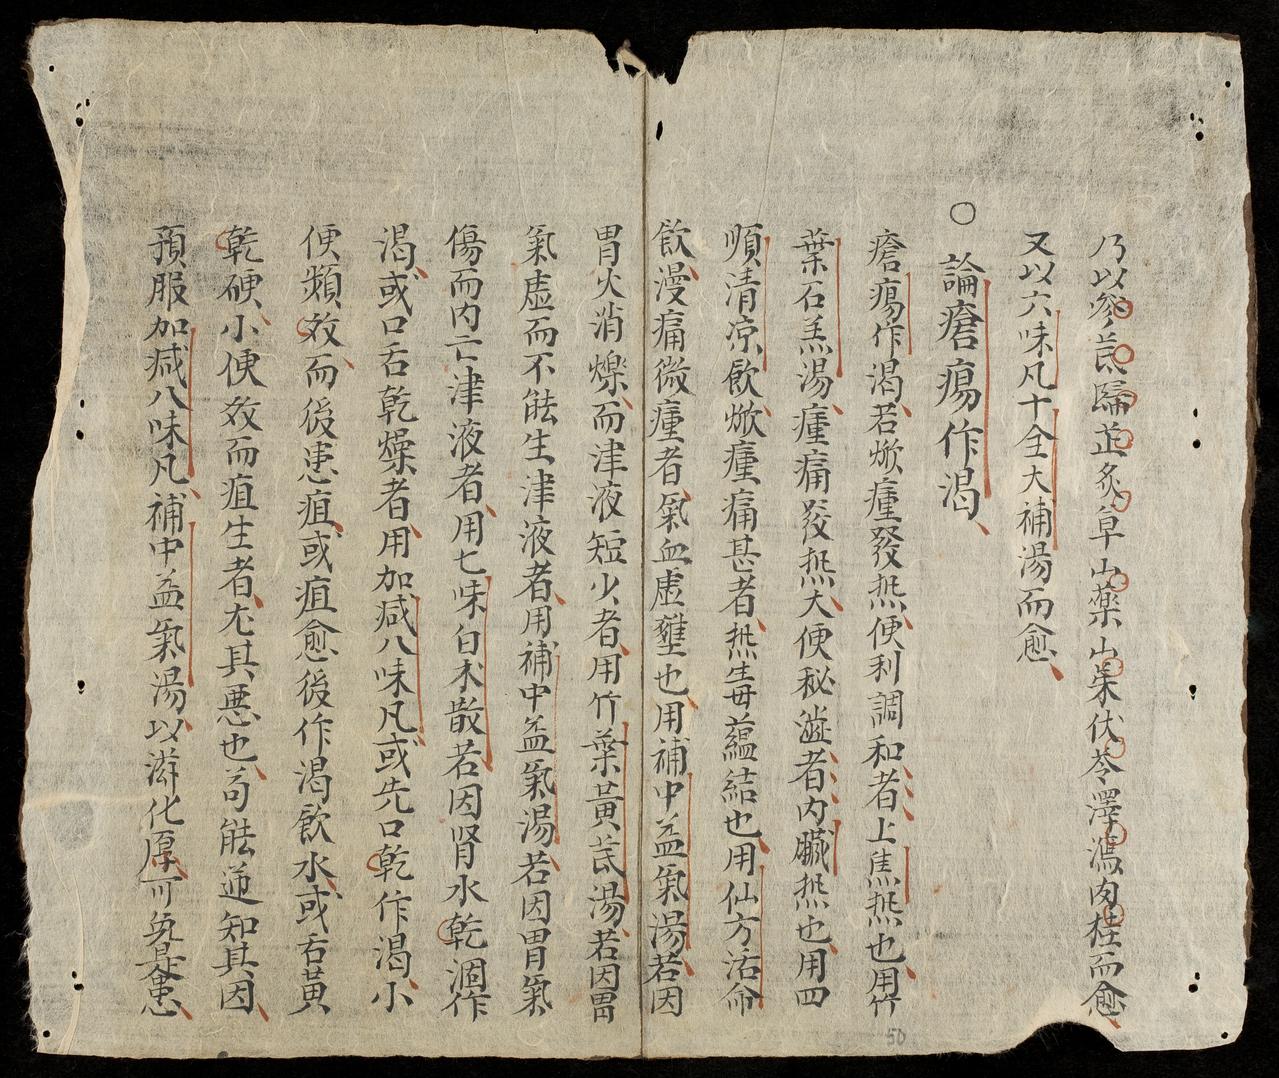 乃以參芪歸芷炙草山藥山茱伏苓澤瀉肉桂而愈
又以六味凡十全大補湯而愈
○論瘡瘍作渴
瘡瘍作渴若焮瘇發热便利調和者上焦热也用竹
葉石羔湯瘇痛發热大便秘澁者内臓热也用四
順清凉飲焮瘇痛甚者热毒蘊結也用仙方活命
飲漫痛微瘇者氣血虚壅也用補中益氣湯若因
胃火消爍而津液短少者用竹葉黃芪湯若因胃
氣虚而不能生津液者用補中益氣湯若因胃氣
傷而内亡津液者用七味白术散若因肾水乾涸作
渴或口舌乾燥者用加减八味凡或先口乾作渴小
便頻效而後患疽或疽愈後作渴飲水或舌黃
乾硬小便效而疽生者尤其悪也苟能逆知其因
預服加减八味凡補中益氣湯以滋化厚可免是患
50